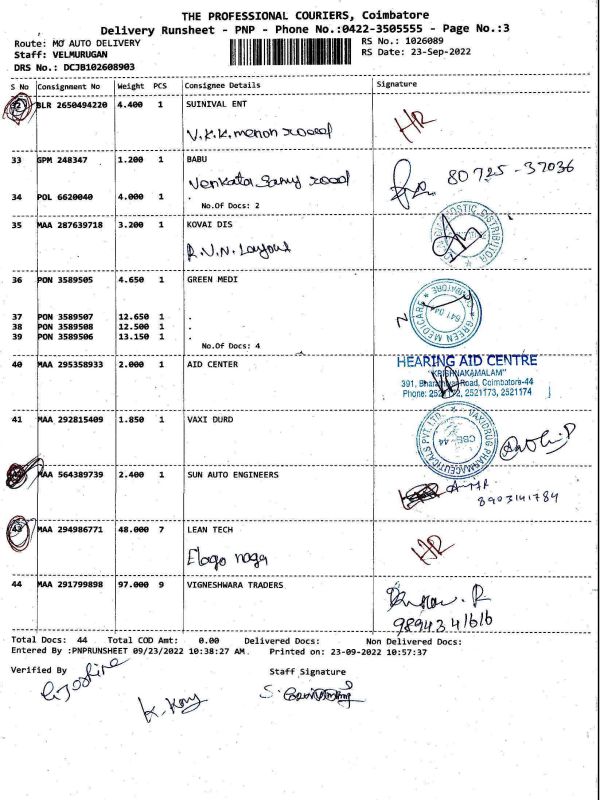 THE PROFESSIONAL COURIERS, Coimbatore
Delivery Runsheet - PNP - Phone No.:0422-3505555 - Page No.:3
Route: MO AUTO DELIVERY
RS No.: 1026089
Staff: VELMURUGAN
RS Date: 23-Sep-2022
DRS No.: DCJB102608903
S No Consignment No Weight PCS Consignee Details Signature
32 BLR 2650494220 4.400 1 SUINIVAL ENT
V.K.K. menon road HR
33 GPM 248347 1.200 1 BABU
Venkata Samy road 80725-37036
34 POL 6620040 4.000 1 .
No.Of Docs: 2
35 MAA 287639718 3.200 1 KOVAI DIS
R.V.N. Layout
36 PON 3589505 4.650 1 GREEN MEDI
GREEN MEDICARE
641 04
37 PON 3589507 12.650 1 .
38 PON 3589508 12.500 1 .
39 PON 3589506 13.150 1 .
No.Of Docs: 4
40 MAA 295358933 2.000 1 AID CENTER
HEARING AID CENTRE
"KRISHNAKAMALAM"
Road, Coimbatore-44
Phone: 2521173, 2521174
41 MAA 292815409 1.850 1 VAXI DURD
VAXIDRUG PHARMACEUTICALS PVT. LTD.
CBE-44
MAA 564389739 2.400 1 SUN AUTO ENGINEERS
8903141784
43 MAA 294986771 48.000 7 LEAN TECH
Elago naga HR
44 MAA 291799898 97.000 9 VIGNESHWARA TRADERS
9894341616
Total Docs: 44 Total COD Amt: 0.00 Delivered Docs: Non Delivered Docs:
Entered By :PNPRUNSHEET 09/23/2022 10:38:27 AM. Printed on: 23-09-2022 10:57:37
Verified By Staff Signature